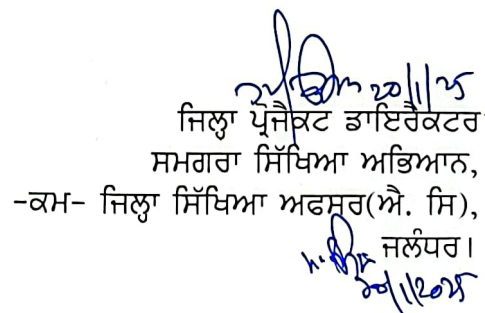 20/1/25
ਜਿਲ੍ਹਾ ਪ੍ਰੋਜੈਕਟ ਡਾਇਰੈਕਟਰ
ਸਮਗਰਾ ਸਿੱਖਿਆ ਅਭਿਆਨ,
-ਕਮ- ਜਿਲ੍ਹਾ ਸਿੱਖਿਆ ਅਫਸਰ(ਐ. ਸਿ),
ਜਲੰਧਰ।
20/1/2025